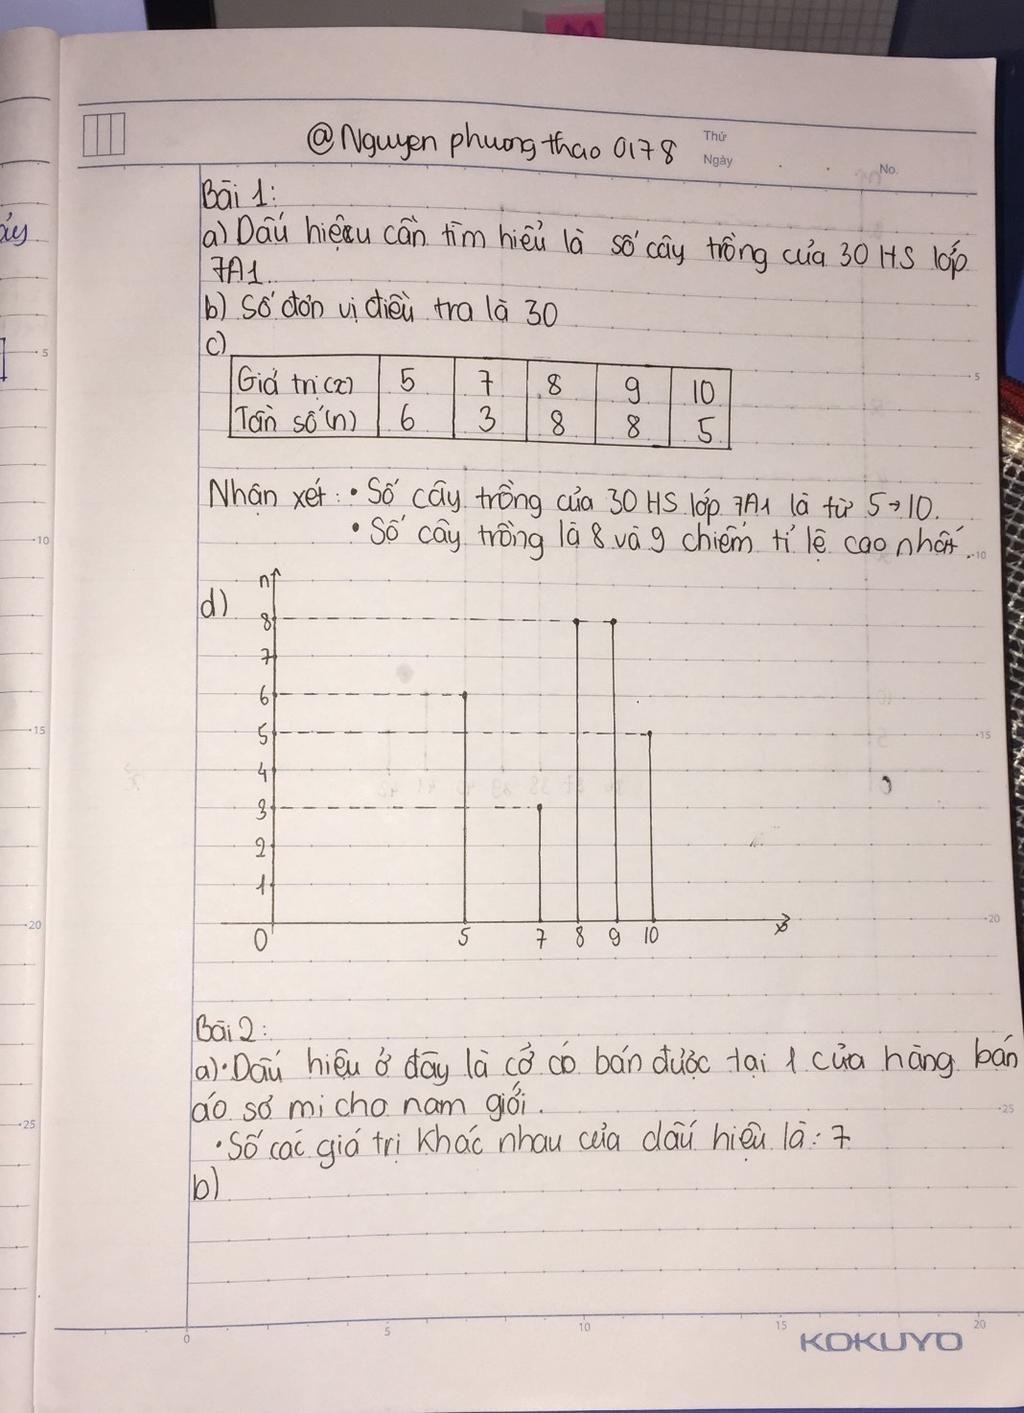 @Nguyen phuong thao 0178
Thứ
Ngày
No.
Bài 1:
a) Dấu hiệu cần tìm hiểu là số cây trồng của 30 HS lớp
7A1.
b) Số đơn vị điều tra là 30
c)
Giá trị (x) 5 7 8 9 10
Tần số (n) 6 3 8 8 5
Nhận xét: • Số cây trồng của 30 HS lớp 7A1 là từ 5→10.
• Số cây trồng là 8 và 9 chiếm tỉ lệ cao nhất.
d)
n
8
7
6
5
4
3
2
1
0 5 7 8 9 10 x
Bài 2:
a) • Dấu hiệu ở đây là cở có bán được tại 1 cửa hàng bán
áo sơ mi cho nam giới.
• Số các giá trị khác nhau của dấu hiệu là: 7
b)
5
10
15
20
25
5
10
15
20
25
0 5 10 15 20
KOKUYO